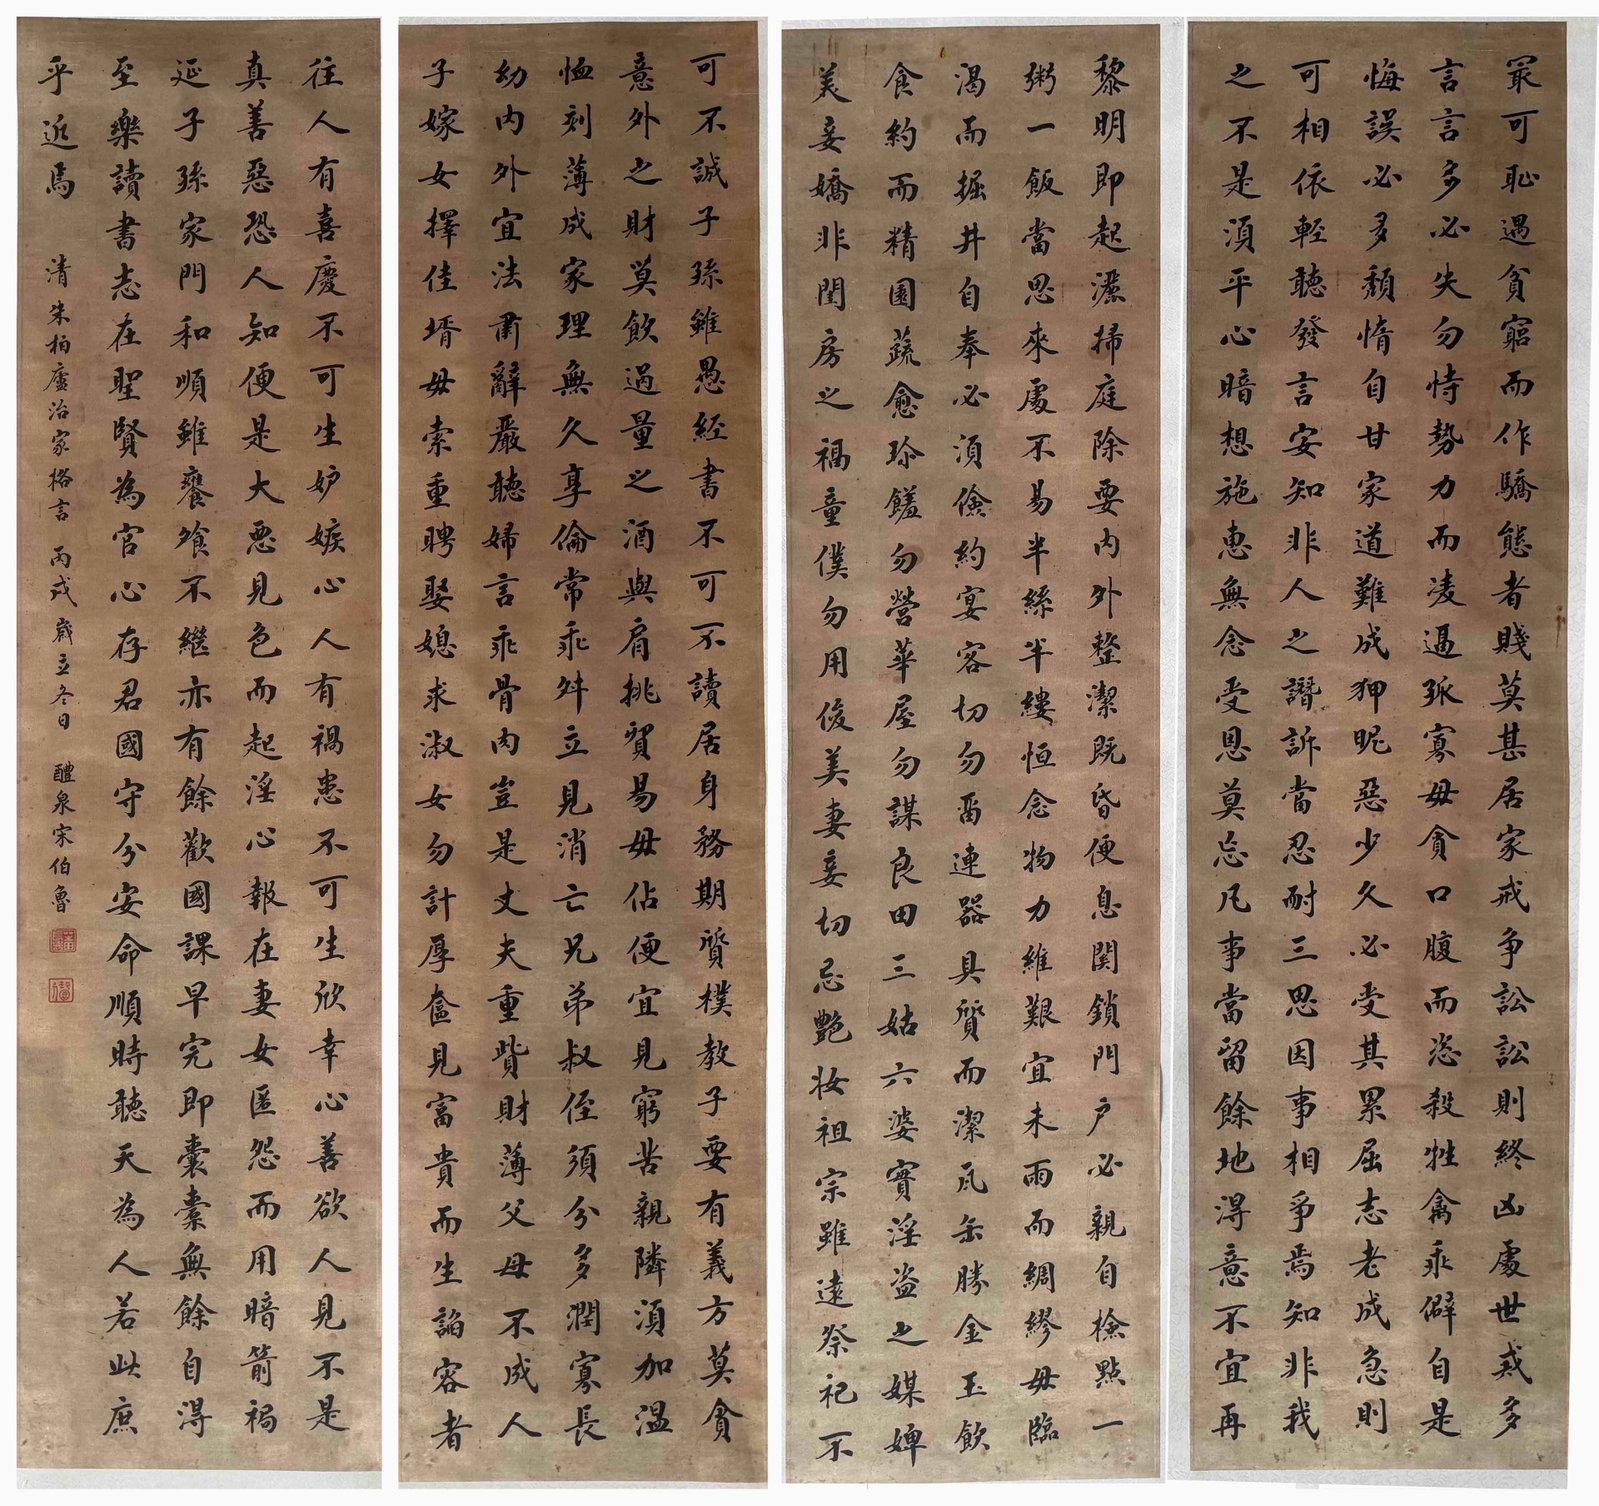 黎明即起灑掃庭除要内外整潔既昏便息関鎖門户必親自檢點一
粥一飯當思來處不易半絲半縷恒念物力維艱宜未雨而綢繆毋臨
渴而掘井自奉必須儉約宴客切勿畱連器具質而潔瓦缶勝金玉飲
食約而精園蔬愈珍饈勿營華屋勿謀良田三姑六婆實淫盗之媒婢
美妾嬌非閨房之福童僕勿用俊美妻妾切忌艷妝祖宗雖遠祭祀不
可不誠子孫雖愚經書不可不讀居身務期質樸教子要有義方莫貪
意外之財莫飲過量之酒與肩挑貿易毋佔便宜見窮苦親隣須加溫
恤刻薄成家理無久享倫常乖舛立見消亡兄弟叔侄須分多潤寡長
幼内外宜法肅辭嚴聽婦言乖骨肉豈是丈夫重貲財薄父母不成人
子嫁女擇佳壻毋索重聘娶媳求淑女勿計厚奩見富貴而生諂容者
冣可恥遇貧窮而作驕態者賤莫甚居家戒争訟訟則終凶處世戒多
言言多必失勿恃勢力而凌逼孤寡毋貪口腹而恣殺牲禽乖僻自是
悔誤必多頽惰自甘家道難成狎昵惡少久必受其累屈志老成急則
可相依輕聽發言安知非人之譖訴當忍耐三思因事相爭焉知非我
之不是須平心暗想施惠無念受恩莫忘凡事當留餘地得意不宜再
往人有喜慶不可生妒嫉心人有禍患不可生欣幸心善欲人見不是
真善惡恐人知便是大惡見色而起淫心報在妻女匿怨而用暗箭禍
延子孫家門和順雖饔飧不繼亦有餘歡國課早完即囊橐無餘自得
至樂讀書志在聖賢為官心存君國守分安命順時聽天為人若此庶
乎近焉
清朱柏廬治家格言 丙戌歲立冬日 醴泉宋伯魯